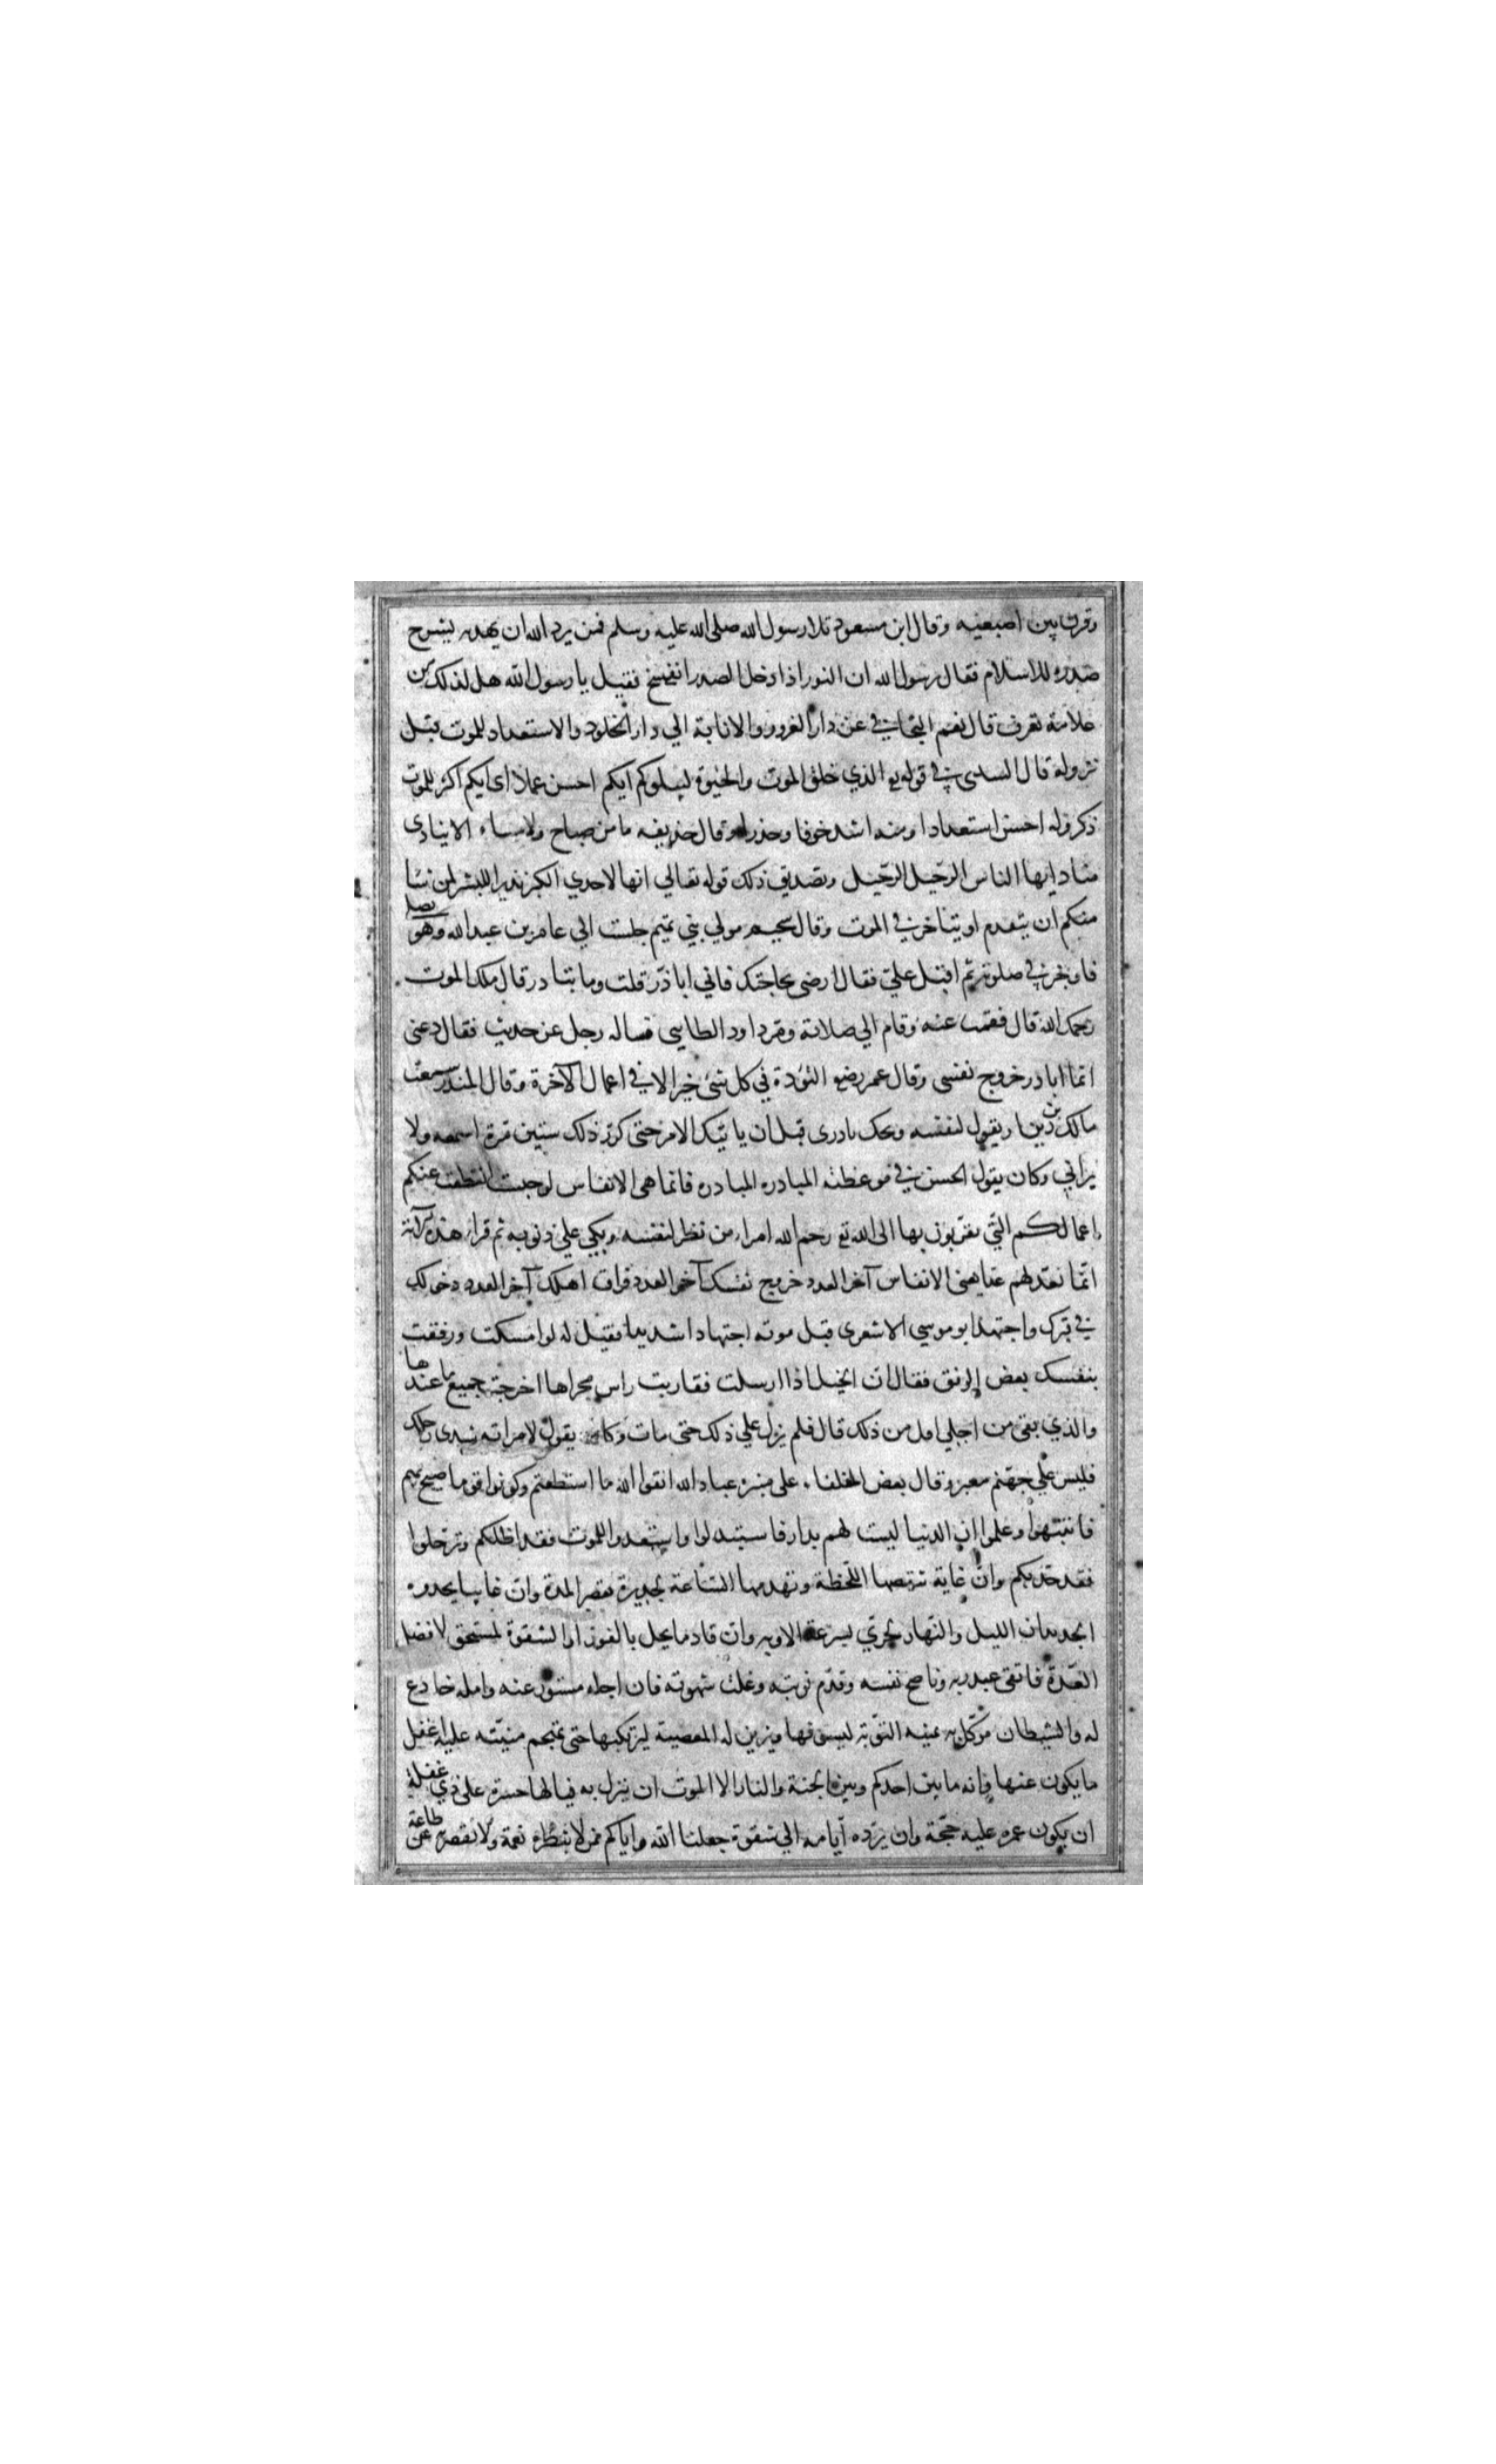 وقرن بين اصبعيه وقال ابن مسعود تلا رسول الله صلى الله عليه وسلم فمن يرد الله ان يهديه يشرح
صدره للاسلام فقال رسول الله ان النور اذا دخل الصدر انفسح فقيل يا رسول الله هل لذلك من
علامة تعرف قال نعم التجافي عن دار الغرور والانابة الي دار الخلود والاستعداد للموت قبل
نزوله قال السدى في قوله تع الذي خلق الموت والحيوة ليبلوكم ايكم احسن عملا اى ايكم اكثر للموت
ذكر وله احسن استعدادا ومنه اشد خوفا وحذرا وقال حذيفه ما من صباح ولا مساء الا ينادى
مناد ايها الناس الرحيل الرحيل وتصديق ذلك قوله تعالي انها لاحدي الكبر نذيرا للبشر لمن شا
منكم ان يتقدم او يتاخر في الموت وقال سحيم مولي بني تميم جلست الي عامر بن عبد الله وهو يصل
فاوجز في صلوته ثم اقبل علي فقال ارضى بحاجتك فاني ابادر قلت وما تبادر قال ملك الموت
رحمك الله قال فقمت عنه وقام الي صلاته ومر داود الطايى فساله رجل عن حديث فقال دعنى
انما ابادر خروج نفسى وقال عمر رضع التؤدة في كل شئ خير الا في اعمال الآخرة وقال المنذر سمعت
مالك بن دينار يقول لنفسه ويحك بادرى قبل ان ياتيك الامر حتى كرر ذلك ستين مرة اسمعه ولا
يراني وكان يقول الحسن في موعظته المبادره المبادره فانما هى الانفاس لو حبست انقطعت عنكم
اعمالكم التي تقربون بها الى الله تع رحم الله امراء من نظر لنفسه وبكي علي ذنوبه ثم قراء هذه الآية
انما نعد لهم عدا يعنى الانفاس آخر العدد خروج نفسك آخر العدد فراق اهلك آخر العدد دخولك
في قبرك واجتهد ابو موسي الاشعرى قبل موته اجتهادا شديدا فقيل له لو امسكت ورفقت
بنفسك بعض الرفق فقال ان الخيل اذا ارسلت فقاربت راس مجراها اخرجت جميع ما عندها
والذي بقى من اجلي اقل من ذلك قال فلم يزل علي ذلك حتى مات وكان يقول لامراته شدى رحلك
فليس علي جهنم معبر وقال بعض الخلفاء على منبره عباد الله اتقوا الله ما استطعتم وكونوا قوما صيح بهم
فانتبهوا وعلموا ان الدنيا ليست لهم بدار فاستبدلوا واستعدوا للموت فقد اظلكم وترحلوا
فقد جد بكم وان غاية تنقصها اللحظة وتهدمها الساعة لجديرة بقصر المدة وان غايبا يحدوه
الجديدان الليل والنهار لحري بسرعة الاوبه وان قادما يحل بالفوز او الشقوة لمستحق لافضل
العدة فاتقى عبد ربه وناصح نفسه وقدم توبته وغلب شهوته فان اجله مستور عنه وامله خادع
له والشيطان موكل به يمنيه التوبة ليسوفها ويزين له المعصية ليرتكبها حتى تهجم منيته عليه اغفل
ما يكون عنها وانه ما بين احدكم وبين الجنة والنار الا الموت ان ينزل به فيالها حسرة على ذي غفلة
ان يكون عمره عليه حجة وان يرده ايامه الي شقوة جعلنا الله واياكم ممن لا تبطره نعمة ولا تقصر به عن طاعة